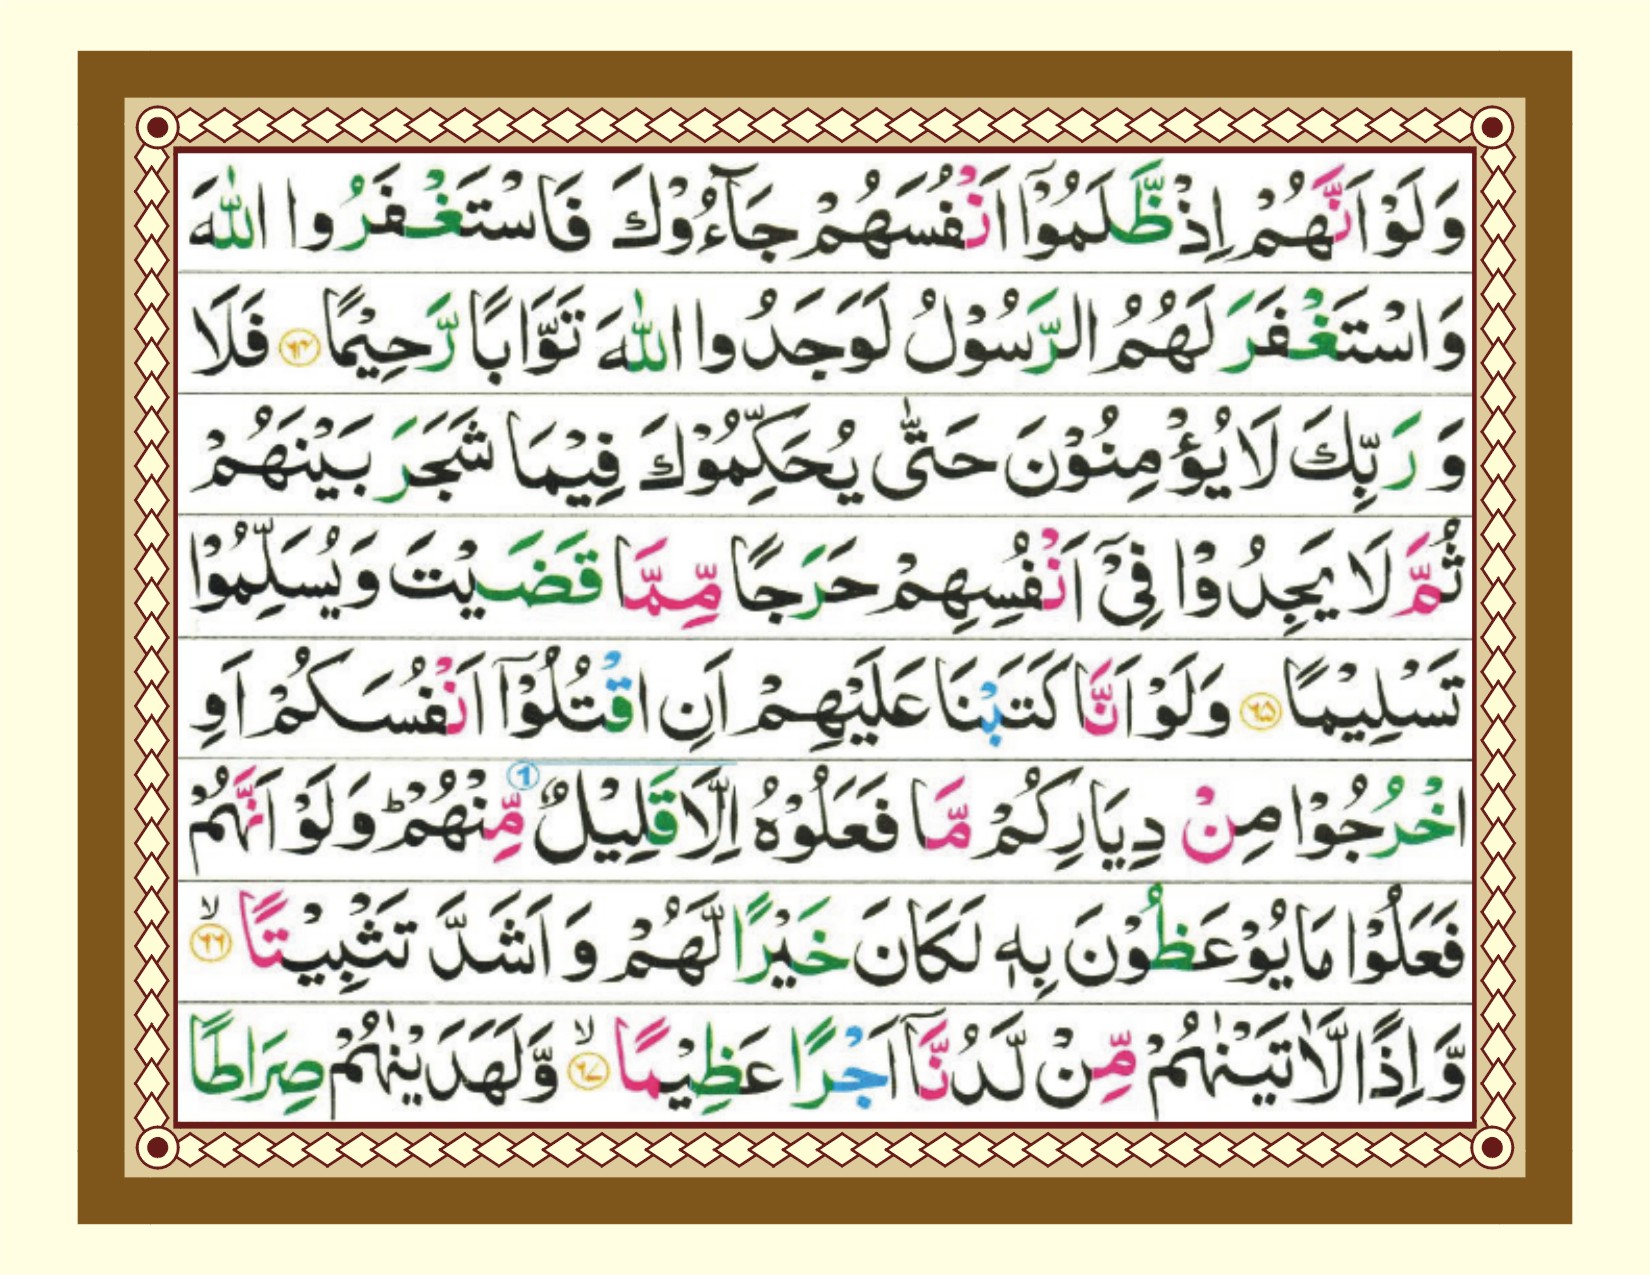 وَلَوْ اَنَّهُمْ اِذْ ظَّلَمُوْۤا اَنْفُسَهُمْ جَآءُوْكَ فَاسْتَغْفَرُوا اللّٰهَ
وَاسْتَغْفَرَ لَهُمُ الرَّسُوْلُ لَوَجَدُوا اللّٰهَ تَوَّابًا رَّحِيْمًا ۝۶۴ فَلَا
وَ رَبِّكَ لَا يُؤْمِنُوْنَ حَتّٰى يُحَكِّمُوْكَ فِيْمَا شَجَرَ بَيْنَهُمْ
ثُمَّ لَا يَجِدُوْا فِيْۤ اَنْفُسِهِمْ حَرَجًا مِّمَّا قَضَيْتَ وَيُسَلِّمُوْا
تَسْلِيْمًا ۝۶۵ وَلَوْ اَنَّا كَتَبْنَا عَلَيْهِمْ اَنِ اقْتُلُوْۤا اَنْفُسَكُمْ اَوِ
اخْرُجُوْا مِنْ دِيَارِكُمْ مَّا فَعَلُوْهُ اِلَّا قَلِيْلٌ 1 مِّنْهُمْ ؕ وَلَوْ اَنَّهُمْ
فَعَلُوْا مَا يُوْعَظُوْنَ بِهٖ لَكَانَ خَيْرًا لَّهُمْ وَ اَشَدَّ تَثْبِيْتًا ۝۶۶ ۙ
وَّ اِذًا لَّاٰتَيْنٰهُمْ مِّنْ لَّدُنَّاۤ اَجْرًا عَظِيْمًا ۝۶۷ ۙ وَّلَهَدَيْنٰهُمْ صِرَاطًا